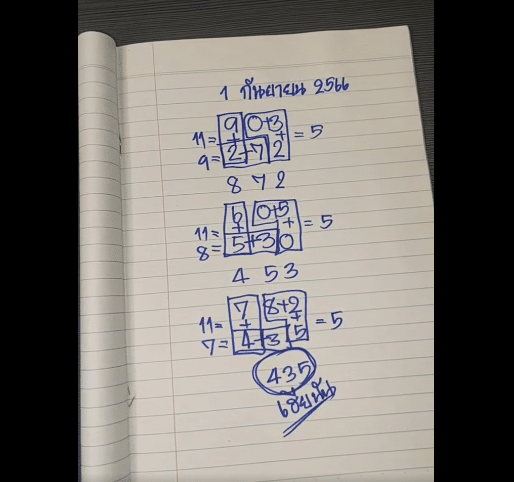 1 กันยายน 2566
11= 9 0+3
+ + = 5
9= 2+7 2
8 7 2
11= 6 0+5
+ + = 5
8= 5+3 0
4 5 3
11= 7 8+2
+ + = 5
7= 4+3 5
435